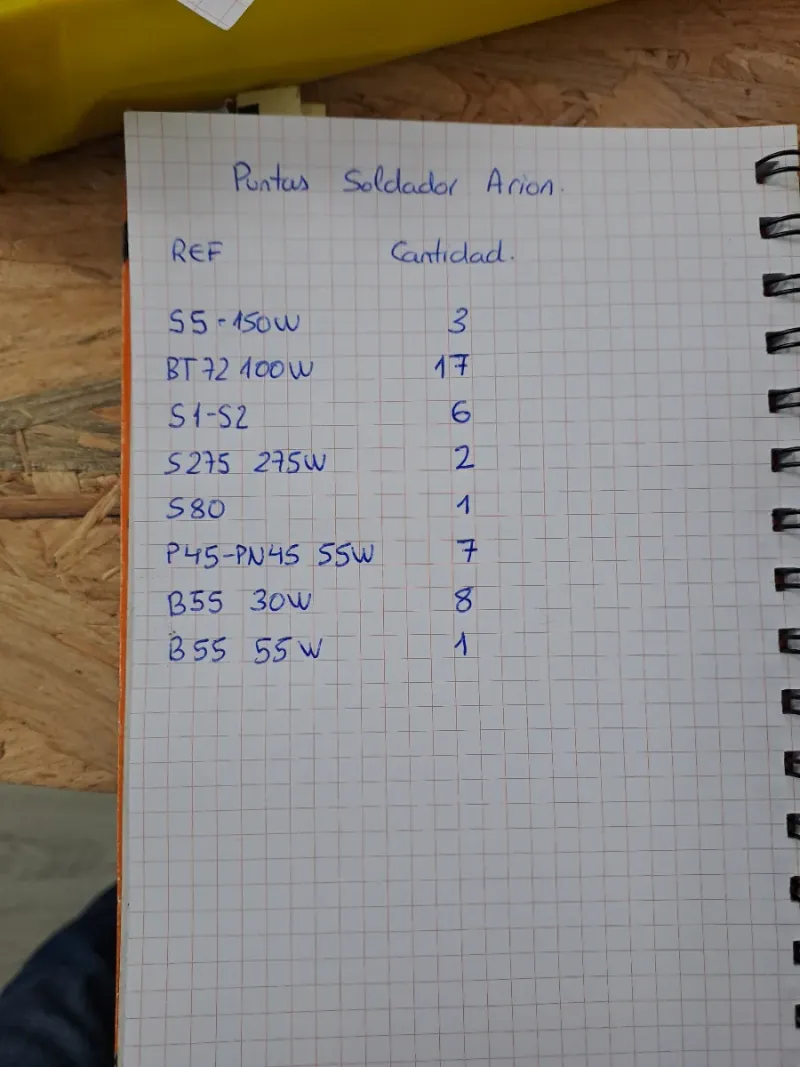 Puntas Soldador Arion.
REF Cantidad.
S5-150W 3
BT72 100W 17
S1-S2 6
S275 275W 2
S80 1
P45-PN45 55W 7
B55 30W 8
B55 55W 1